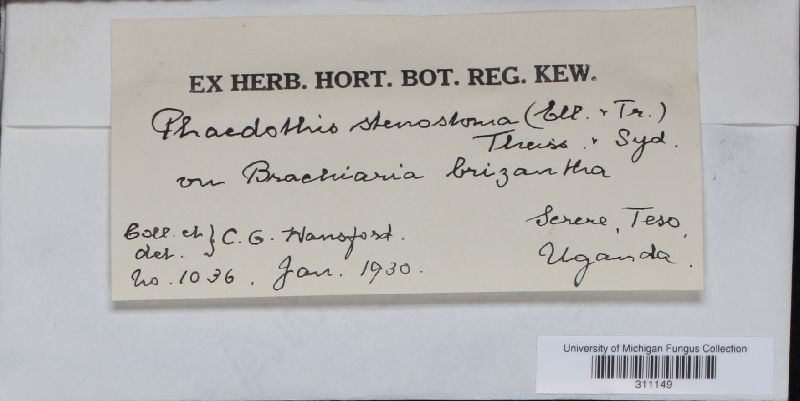 EX HERB. HORT. BOT. REG. KEW.
Phaedothis stenostoma (Ell. & Tr.)
Theiss. & Syd.
on Brachiaria brizantha
Coll. et } C. G. Hansford.
det.
No. 1036. Jan. 1930.
Serere, Teso,
Uganda.
University of Michigan Fungus Collection
311149